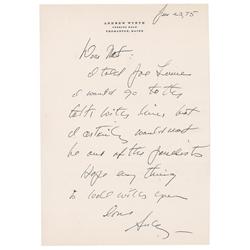 ANDREW WYETH
CUSHING ROAD
THOMASTON, MAINE
23, 75
Dear Nat:
I told Joe
I would go to the
talk with him but
I certainly would not
be one of the panelists
Hope every thing
is well with you
love
Andy